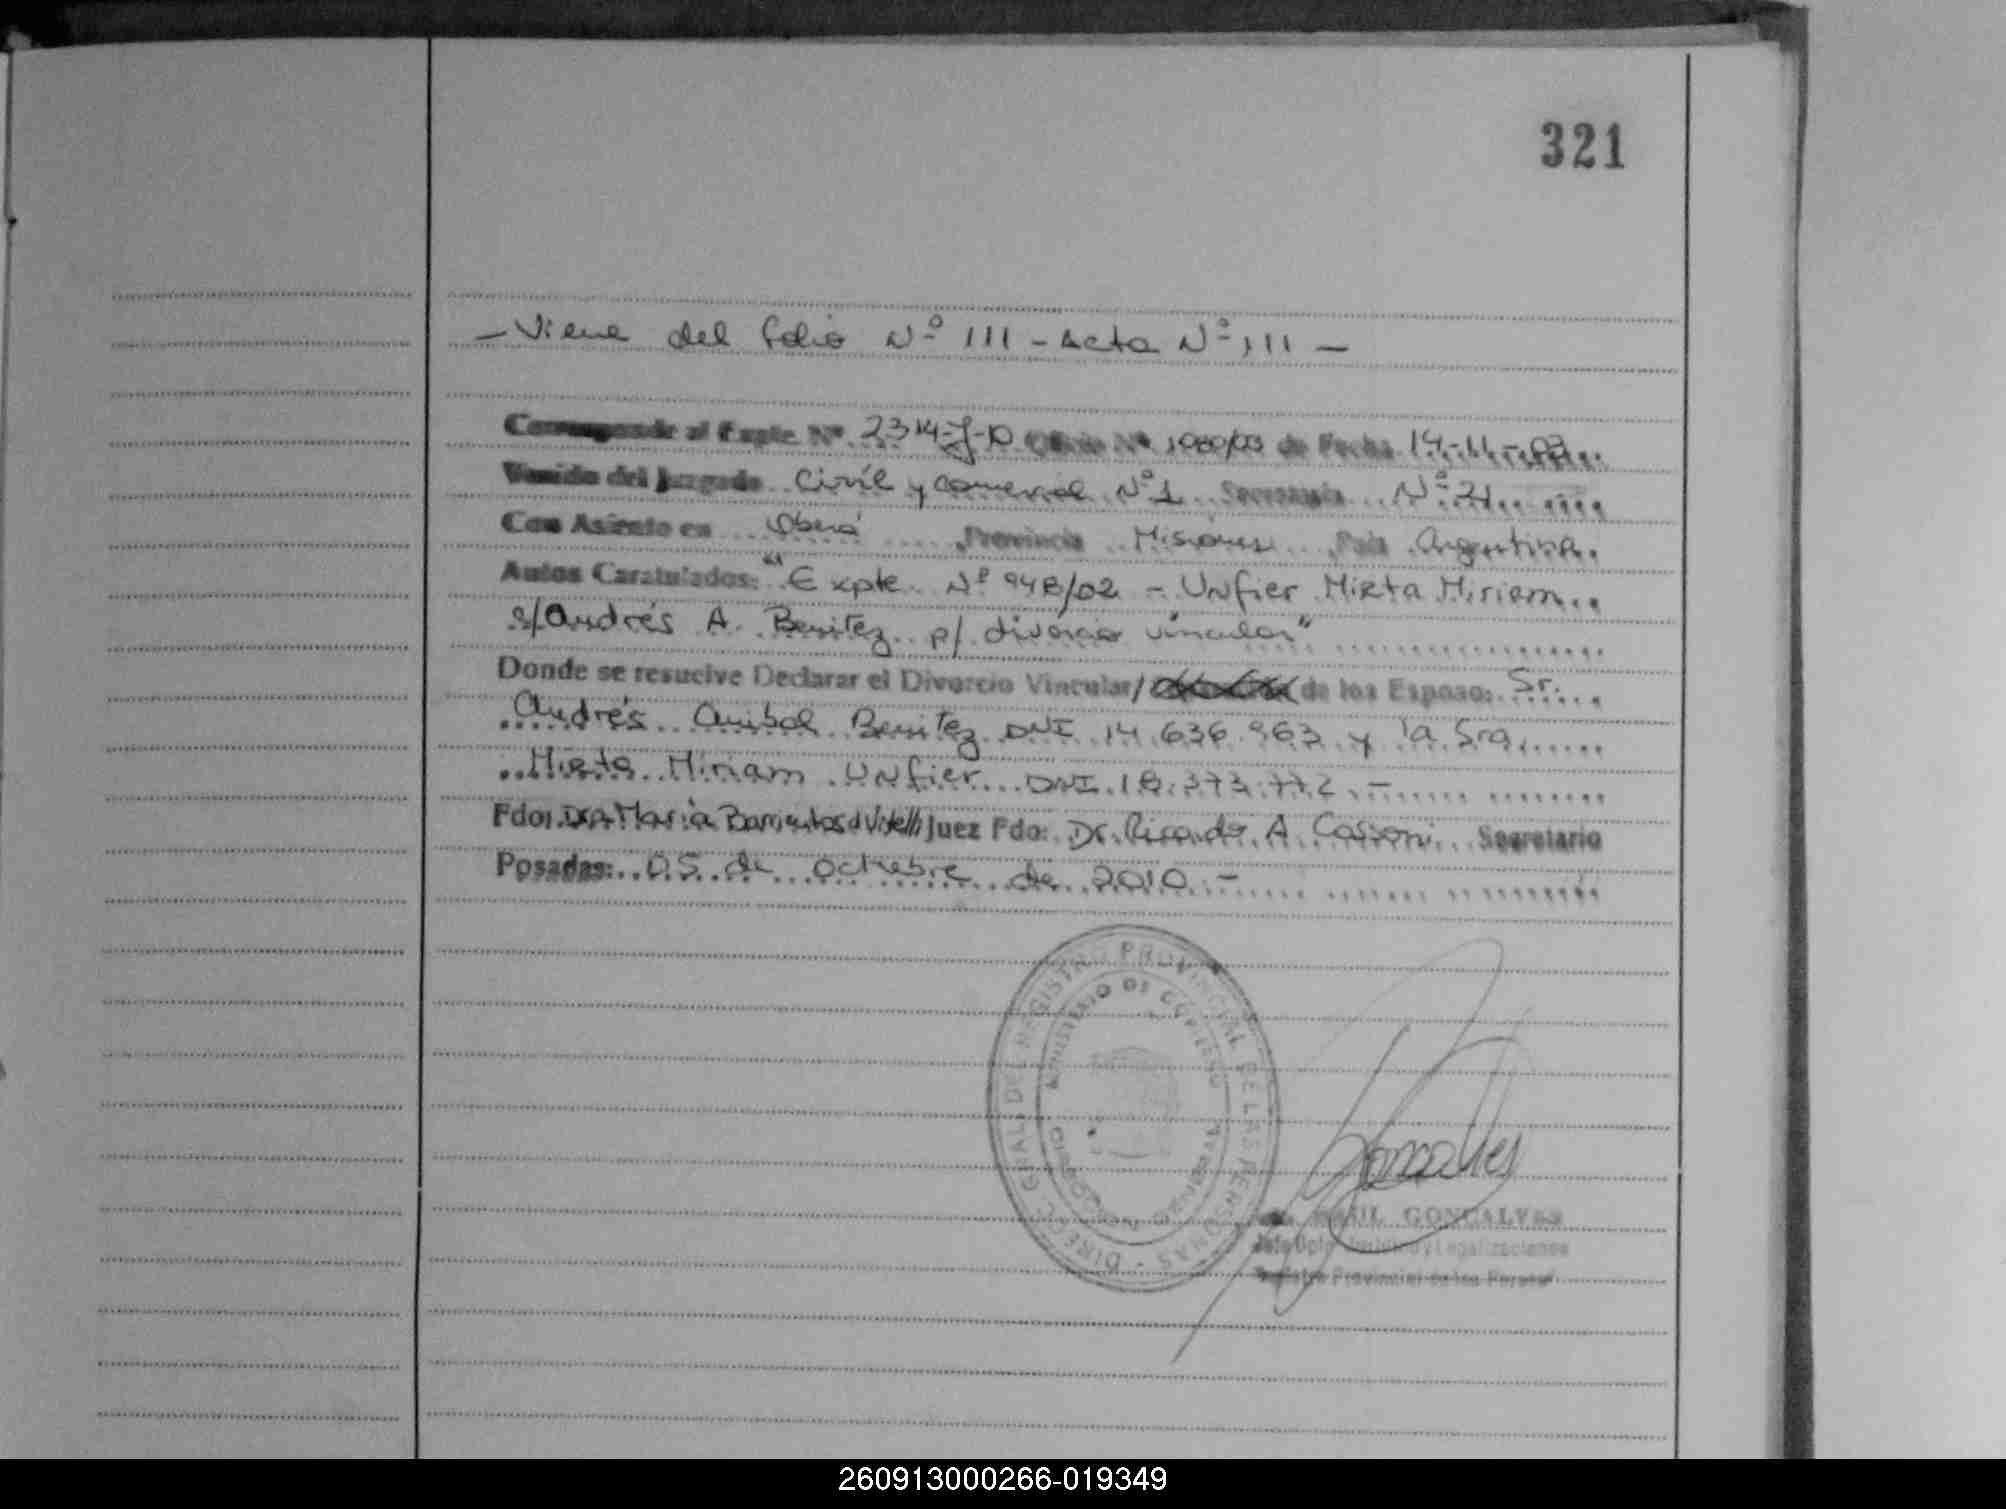 321
- Viene del folio Nº 111 - Acta Nº 111 -
Corresponde al Expte. Nº 2314-J-10 Oficio Nº 1080/03 de Fecha 14-11-03
Venido del Juzgado Civil y Comercial Nº 1 Secretaría Nº 21
Con Asiento en Oberá Provincia Misiones País Argentina.
Autos Caratulados: "Expte Nº 948/02 - Unfier Mirta Miriam
s/ Andrés A. Benitez p/ divorcio vincular"
Donde se resuelve Declarar el Divorcio Vincular/ de los Esposo: Sr.
Andrés Anibal Benitez DNI 14.636.963 y la Sra.
Mirta Miriam Unfier DNI 18.373.772.-
Fdo: Dra. María Barrientos d Vitelli Juez Fdo: Dr. Ricardo A. Cassoni Secretario
Posadas: 05 de octubre de 2010.-
DIREC. GRAL. DEL REGISTRO PROVINCIAL DE LAS PERSONAS -
MINISTERIO DE GOBIERNO
RAUL GONCALVES
Jefe Dpto. y Legalizaciones
Registro Provincial de las Personas
260913000266-019349